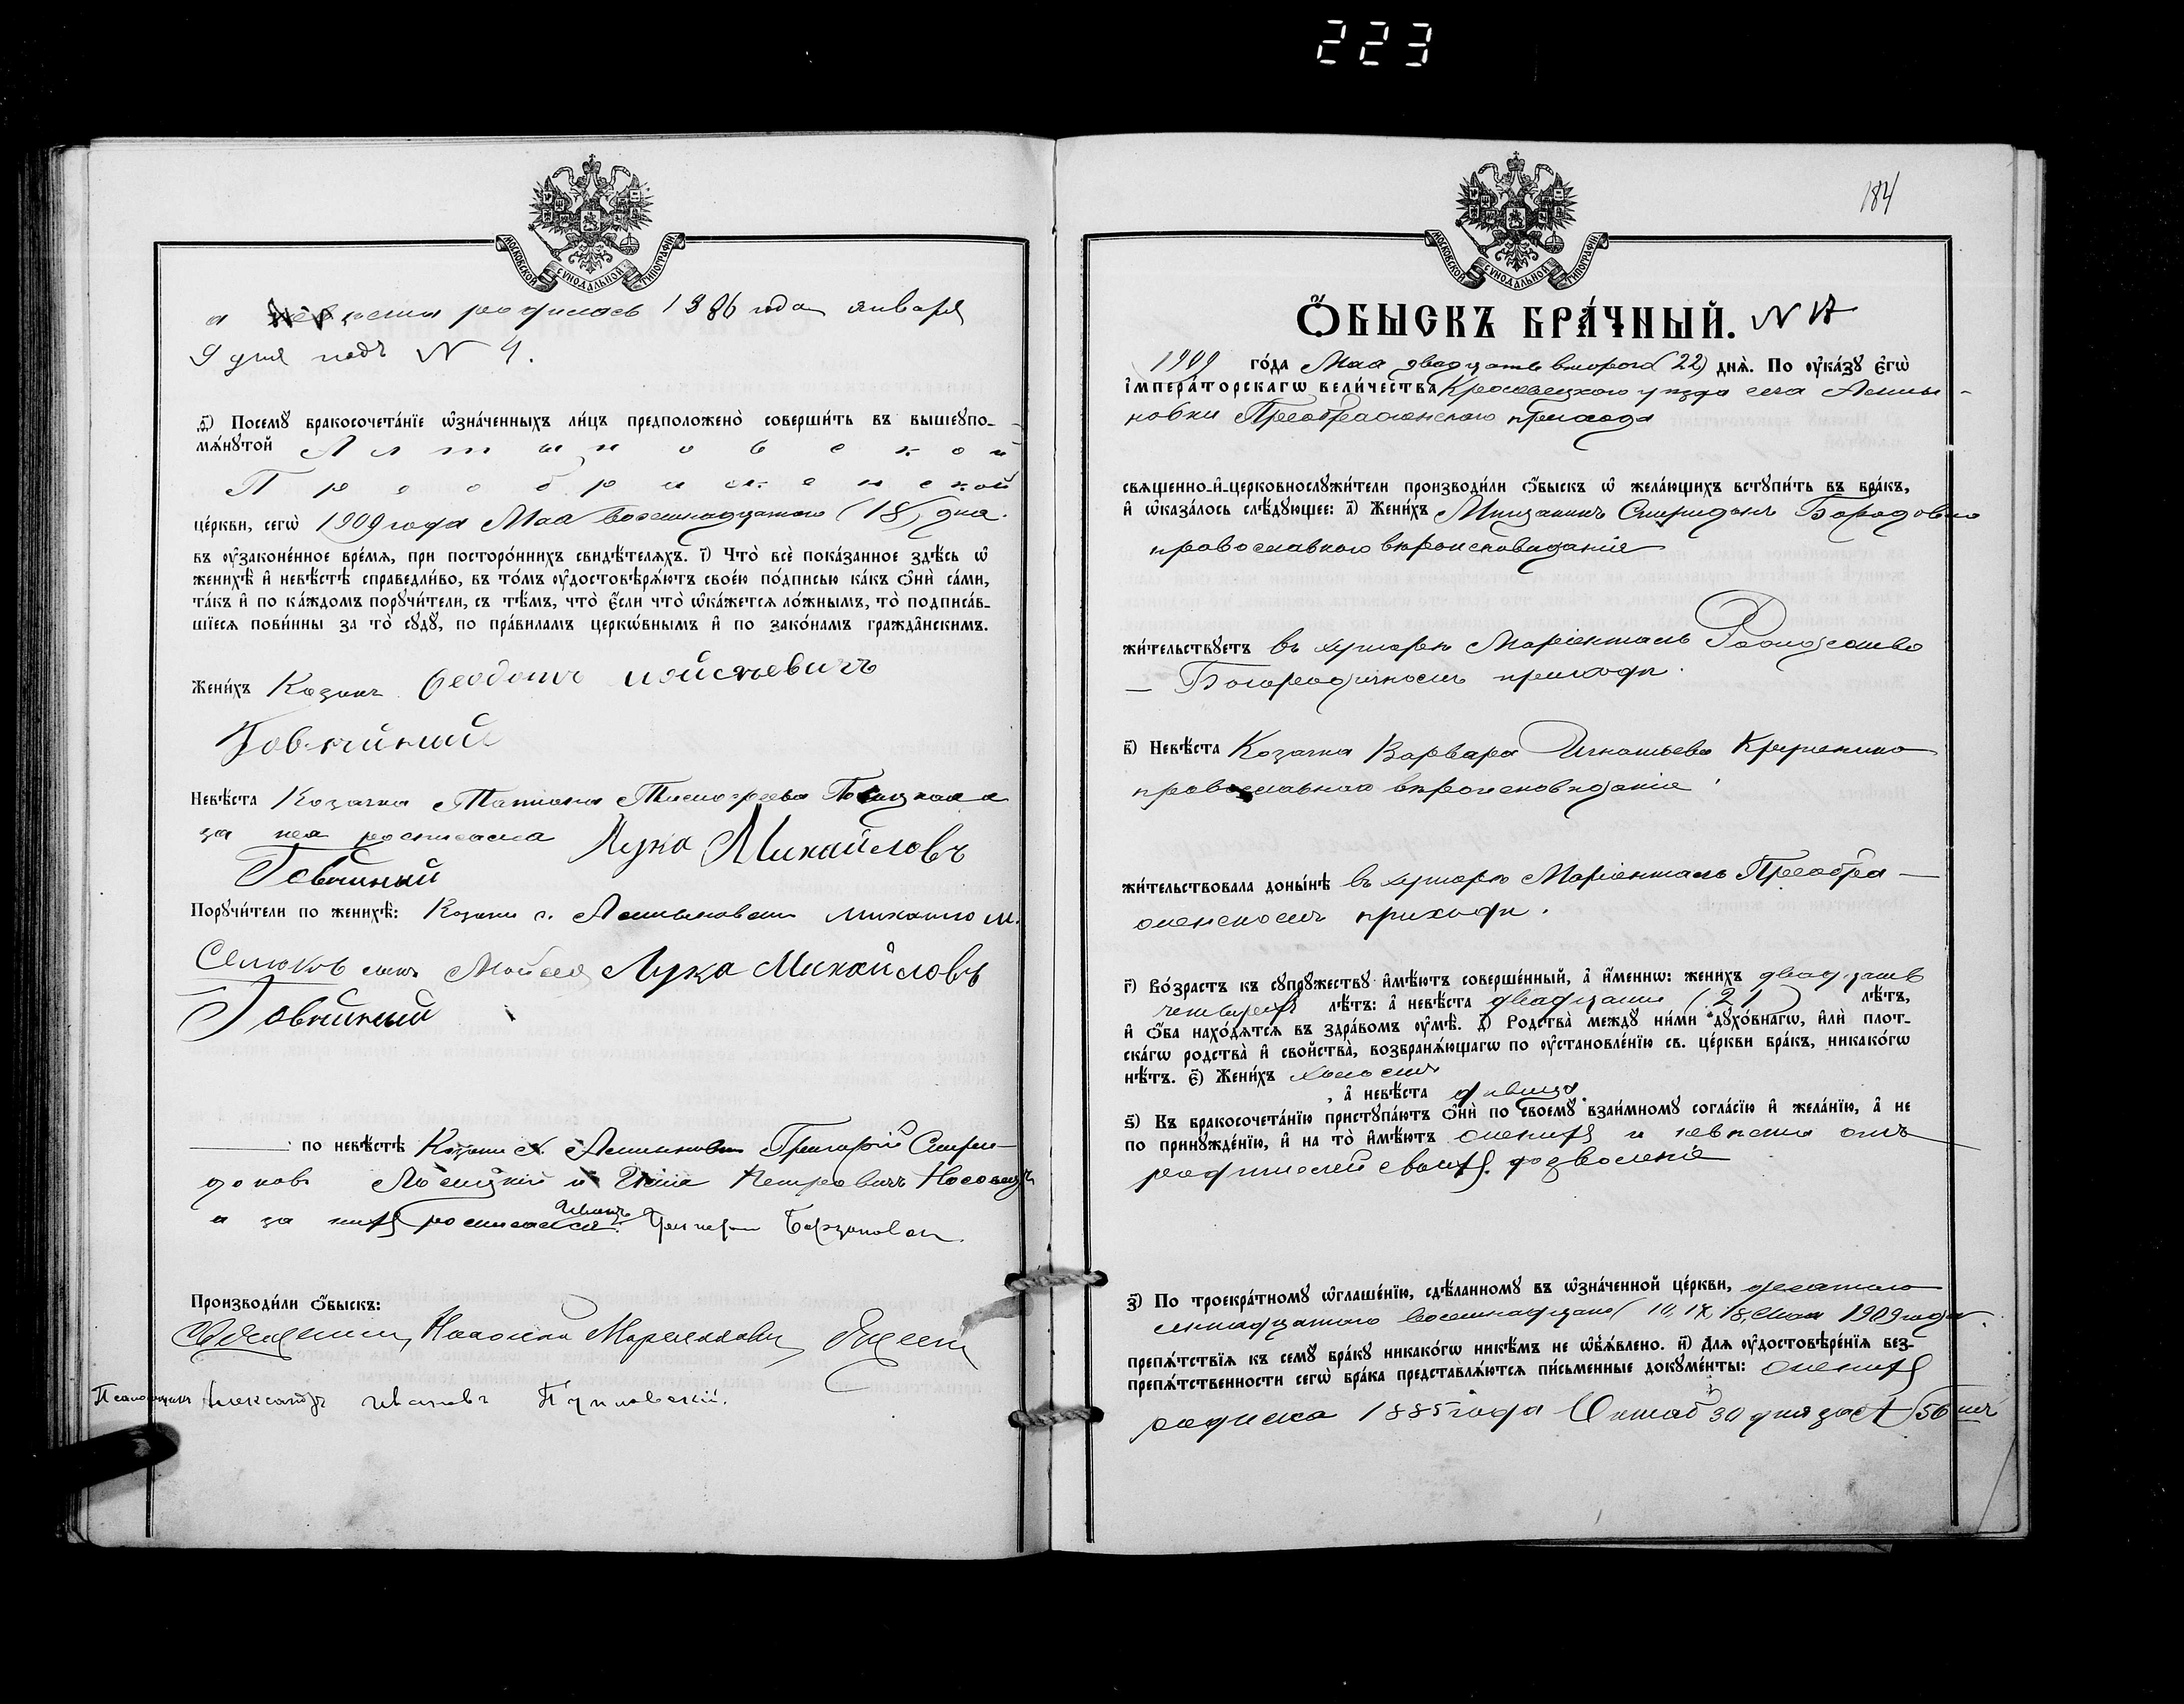 223
МОСКОВСКОЙ СУНОДАЛЬНОЙ ТИПОГРАФІИ
а невеста родилась 1886 года января
9 дня подъ N 4.
Ѳ҃) Посемꙋ̀ бракосочета́нїе ѡ҆зна́ченныхъ ли́цъ предположено̀ соверши́ть въ вышеꙋпо-
мѧ́нꙋтой Алтыновской
Преображенской
це́ркви, сегѡ̀ 1909 года Мая восемнадцатого (18) дня.
въ ᲂу҆зако́ненное вре́мѧ, при посторо́ннихъ свидѣ́телѧхъ. і҃) Что̀ всѐ пока́занное здѣ́сь ѡ҆
женихѣ̀ и҆ невѣ́стѣ справедли́во, въ то́мъ ᲂу҆достовѣрѧ́ютъ свое́ю по́дписью ка́къ ѻ҆нѝ са́ми,
та́къ и҆ по ка́ждомъ порꙋчи́тели, съ тѣ́мъ, что̀ є҆́сли что̀ ѡ҆ка́жетсѧ ло́жнымъ, то̀ подписа́в-
шїесѧ пови́нны за то̀ сꙋдꙋ̀, по пра́виламъ церкѡ́внымъ и҆ по зако́намъ гражда́нскимъ.
Жени́хъ Козакъ Феодотъ Мойсѣевичъ
Невѣ́ста Козачка Татiана
за нея росписался Лука Михайловъ
Порꙋчи́тели по женихѣ̀: Козаки с. Алтыновки Михаило М.
Селюковъ Лука Михайловъ
по невѣ́стѣ Козаки с. Алтыновки Григорій Спири-
доновъ Петровичъ Носовецъ
а за нихъ росписался
Производи́ли ѻ҆́быскъ:
Священникъ
Псаломщикъ Александръ Ивановъ
184
МОСКОВСКОЙ СУНОДАЛЬНОЙ ТИПОГРАФІИ
Ѻ҆́БЫСКЪ БРА́ЧНЫЙ. N
1909 го́да Мая двадцать второго (22) днѧ̀. По ᲂу҆ка́зꙋ Е҆гѡ̀
І҆мпера́торскагѡ вели́чества Кролевецкого уезда села Алты-
новки Преображенского прихода
свѧще́нно-и҆-церковнослꙋжи́тели производи́ли ѻ҆́быскъ ѡ҆ жела́ющихъ встꙋпи́ть въ бра́къ,
и҆ ѡ҆каза́лось слѣ́дꙋющее: а҃) Жени́хъ Мещанинъ Спиридонъ
православного вероисповедания
жи́тельствꙋетъ въ хуторе Маріенталь Рождество
- Богородичномъ приходе.
в҃) Невѣ́ста Козачка Варвара Игнатьева
православнаго вероисповедания
жи́тельствовала доны́нѣ въ хуторе Маріенталь Преобра-
женскомъ приходе.
г҃) Во́зрастъ къ сꙋпрꙋ́жествꙋ и҆мѣ́ютъ соверше́нный, а҆ и҆́меннѡ: жени́хъ двадцать
четырехъ лѣ́тъ: а҆ невѣ́ста двадцати (21) лѣ́тъ,
и҆ ѻ҆́ба нахо́дѧтсѧ въ здра́вомъ ᲂу҆мѣ̀. д҃) Родства̀ междꙋ̀ ни́ми дꙋхо́внагѡ, и҆лѝ плот-
ска́гѡ родства̀ и҆ сво́йства̀, возбранѧ́ющагѡ по ᲂу҆становле́нїю св. це́ркви бра́къ, никако́гѡ
нѣ́тъ. є҃) Жени́хъ холостъ
, а҆ невѣ́ста девица.
ѕ҃) Къ бракосочета́нїю пристꙋпа́ютъ ѻ҆нѝ по своемꙋ̀ взаи́мномꙋ согла́сїю и҆ жела́нїю, а҆ не
по принꙋжде́нїю, и҆ на то̀ и҆мѣ́ютъ женихъ и невеста отъ
родителей своихъ дозволение
з҃) По троекра́тномꙋ ѡ҆глаше́нїю, сдѣ́ланномꙋ въ ѡ҆зна́ченной це́ркви, десятого
семнадцатого восемнадцаго 10, 17, 18, Мая 1909 года.
препѧ́тствїѧ къ семꙋ̀ бра́кꙋ никако́гѡ никѣ́мъ не ѡ҆б̾ѧ́влено. и҃) Длѧ̀ ᲂу҆достовѣре́нїѧ без-
препѧ́тственности сегѡ̀ бра́ка представлѧ́ютсѧ пи́сьменные докꙋме́нты: женихъ
родился 1885 года Октяб 30 дня